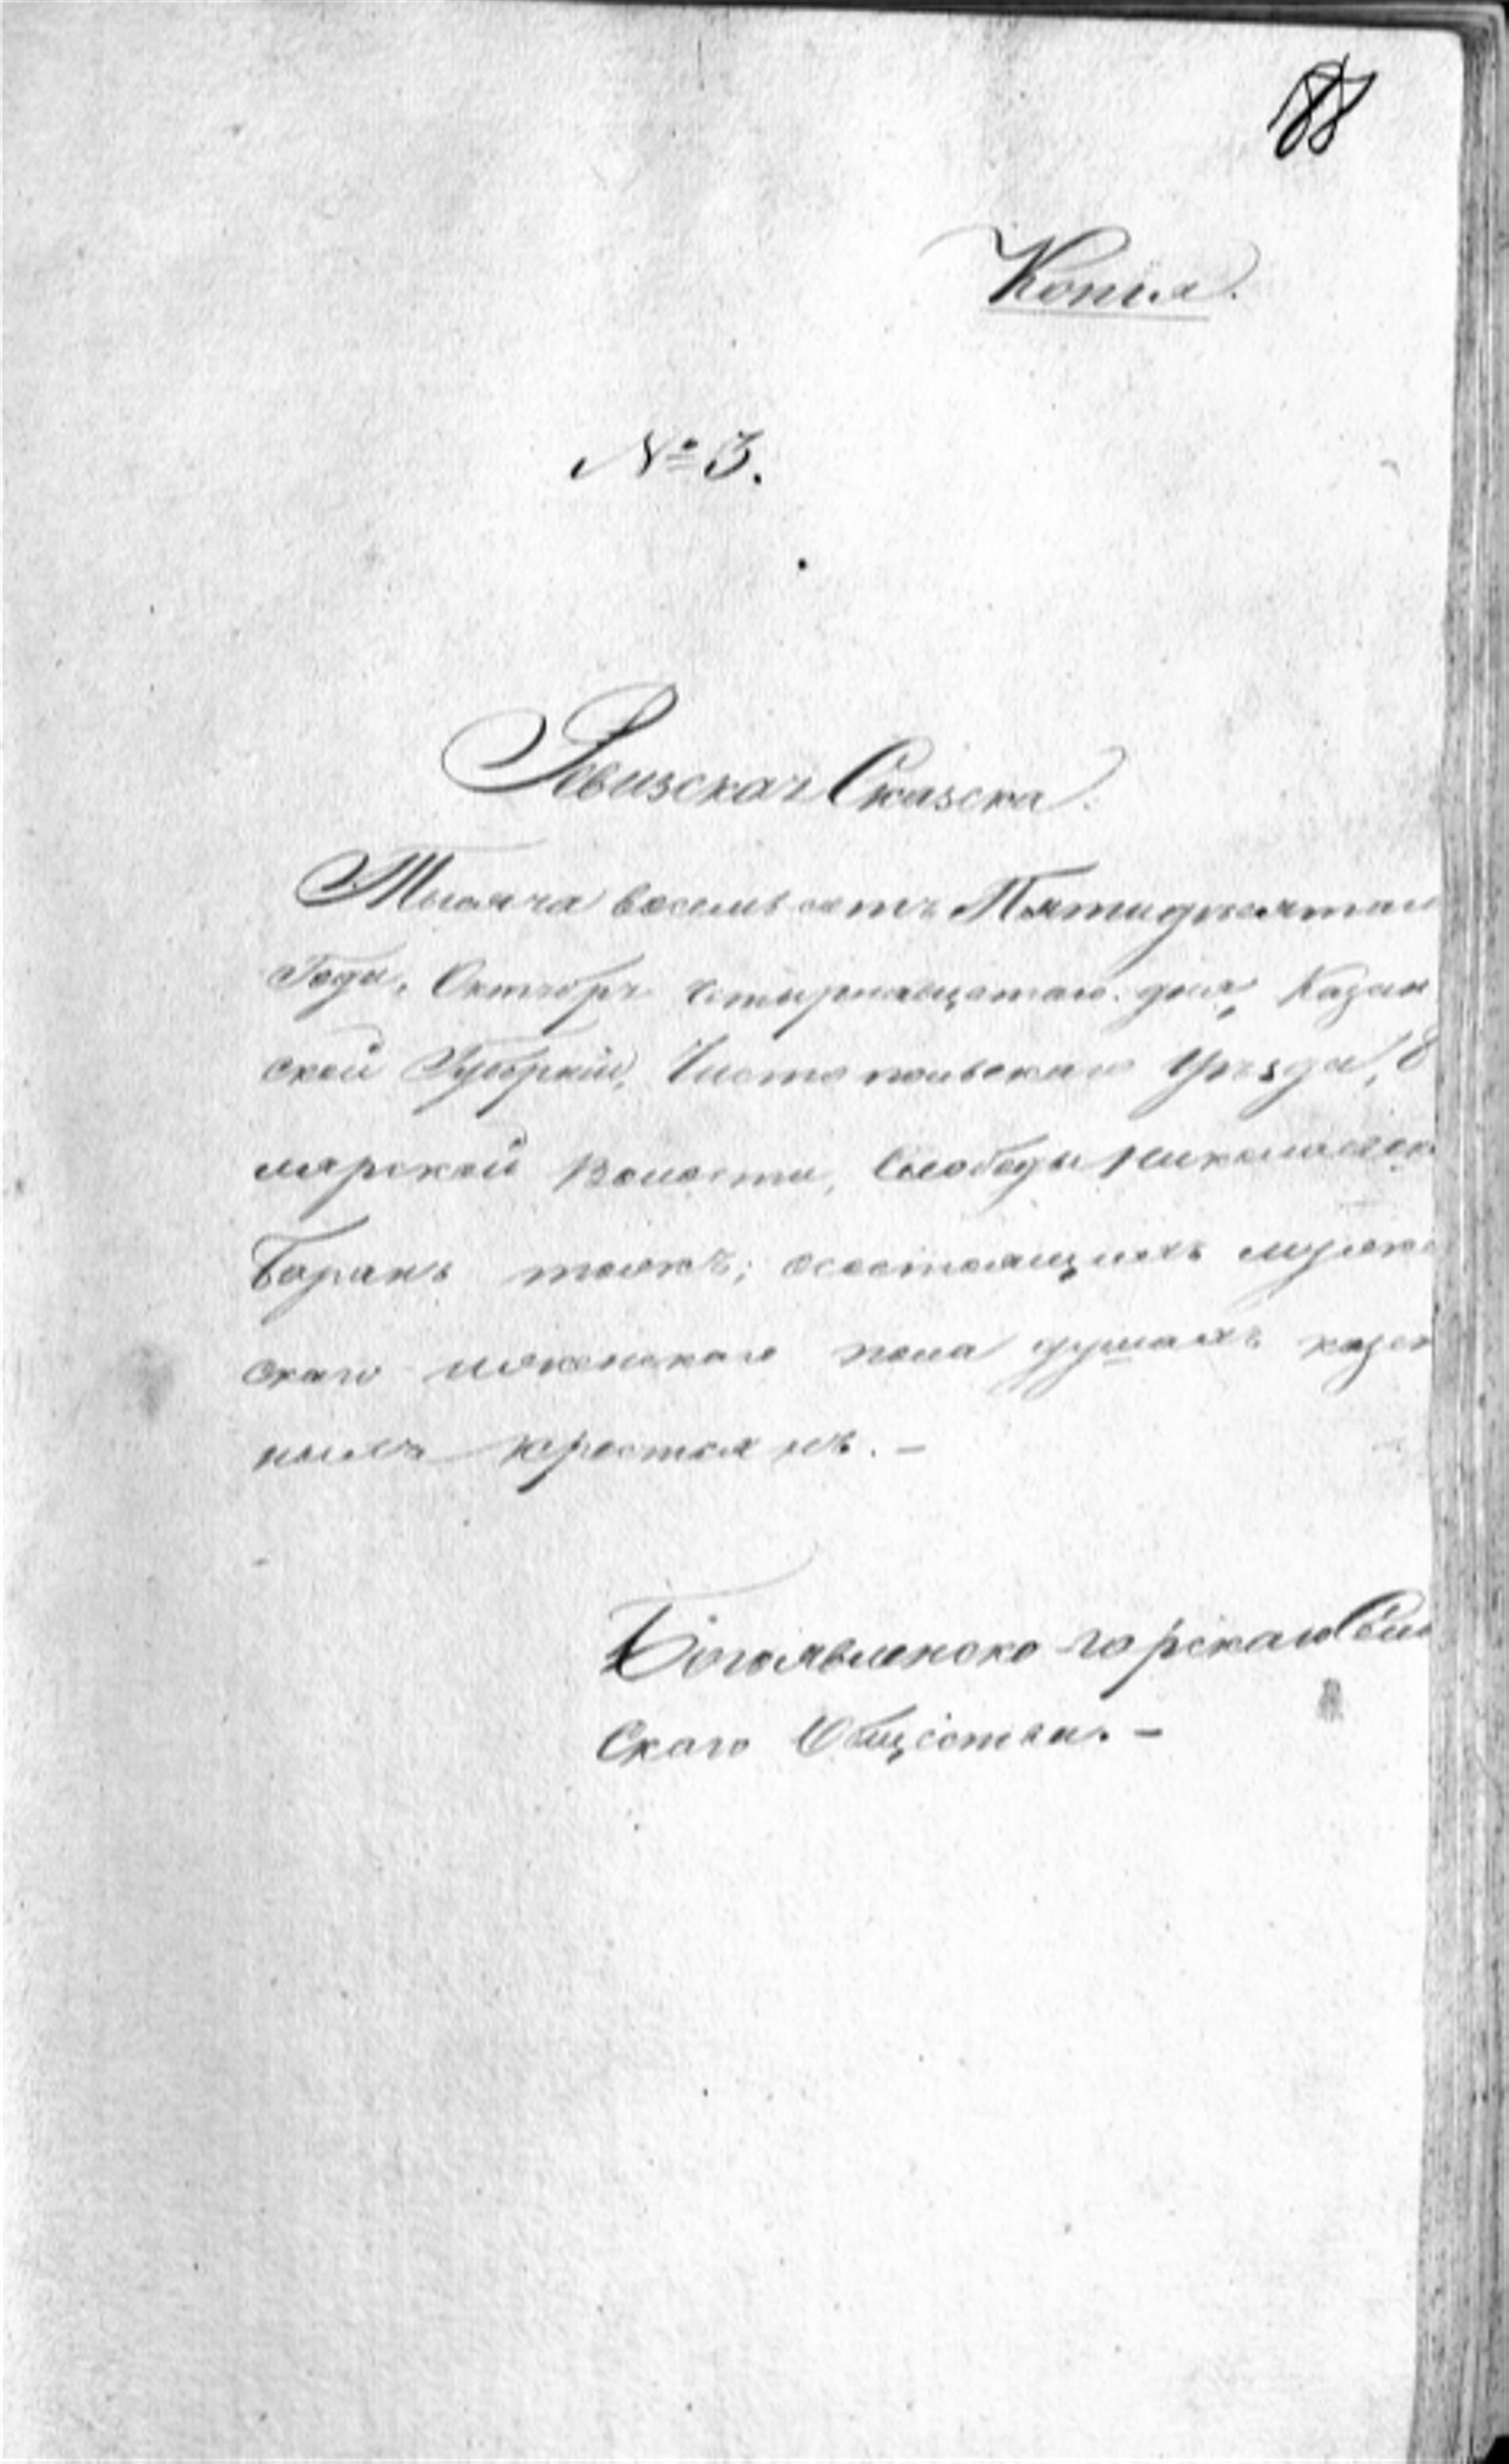 88
Копія.
№ 3.
Ревизская Сказска
Тысяча восемьсотъ Пятидесятаго
Года, Октября четырнадцатаго дня, Казан
ской Губерніи, Чистопольскаго Уѣзда,
лярской Волости, Слободы
Баранъ тожъ; осостоящихъ мужеска
скаго иженскаго пола душахъ казен
ныхъ крестьянъ. —
Богоявленско-горскаго Сель
скаго Общества. —